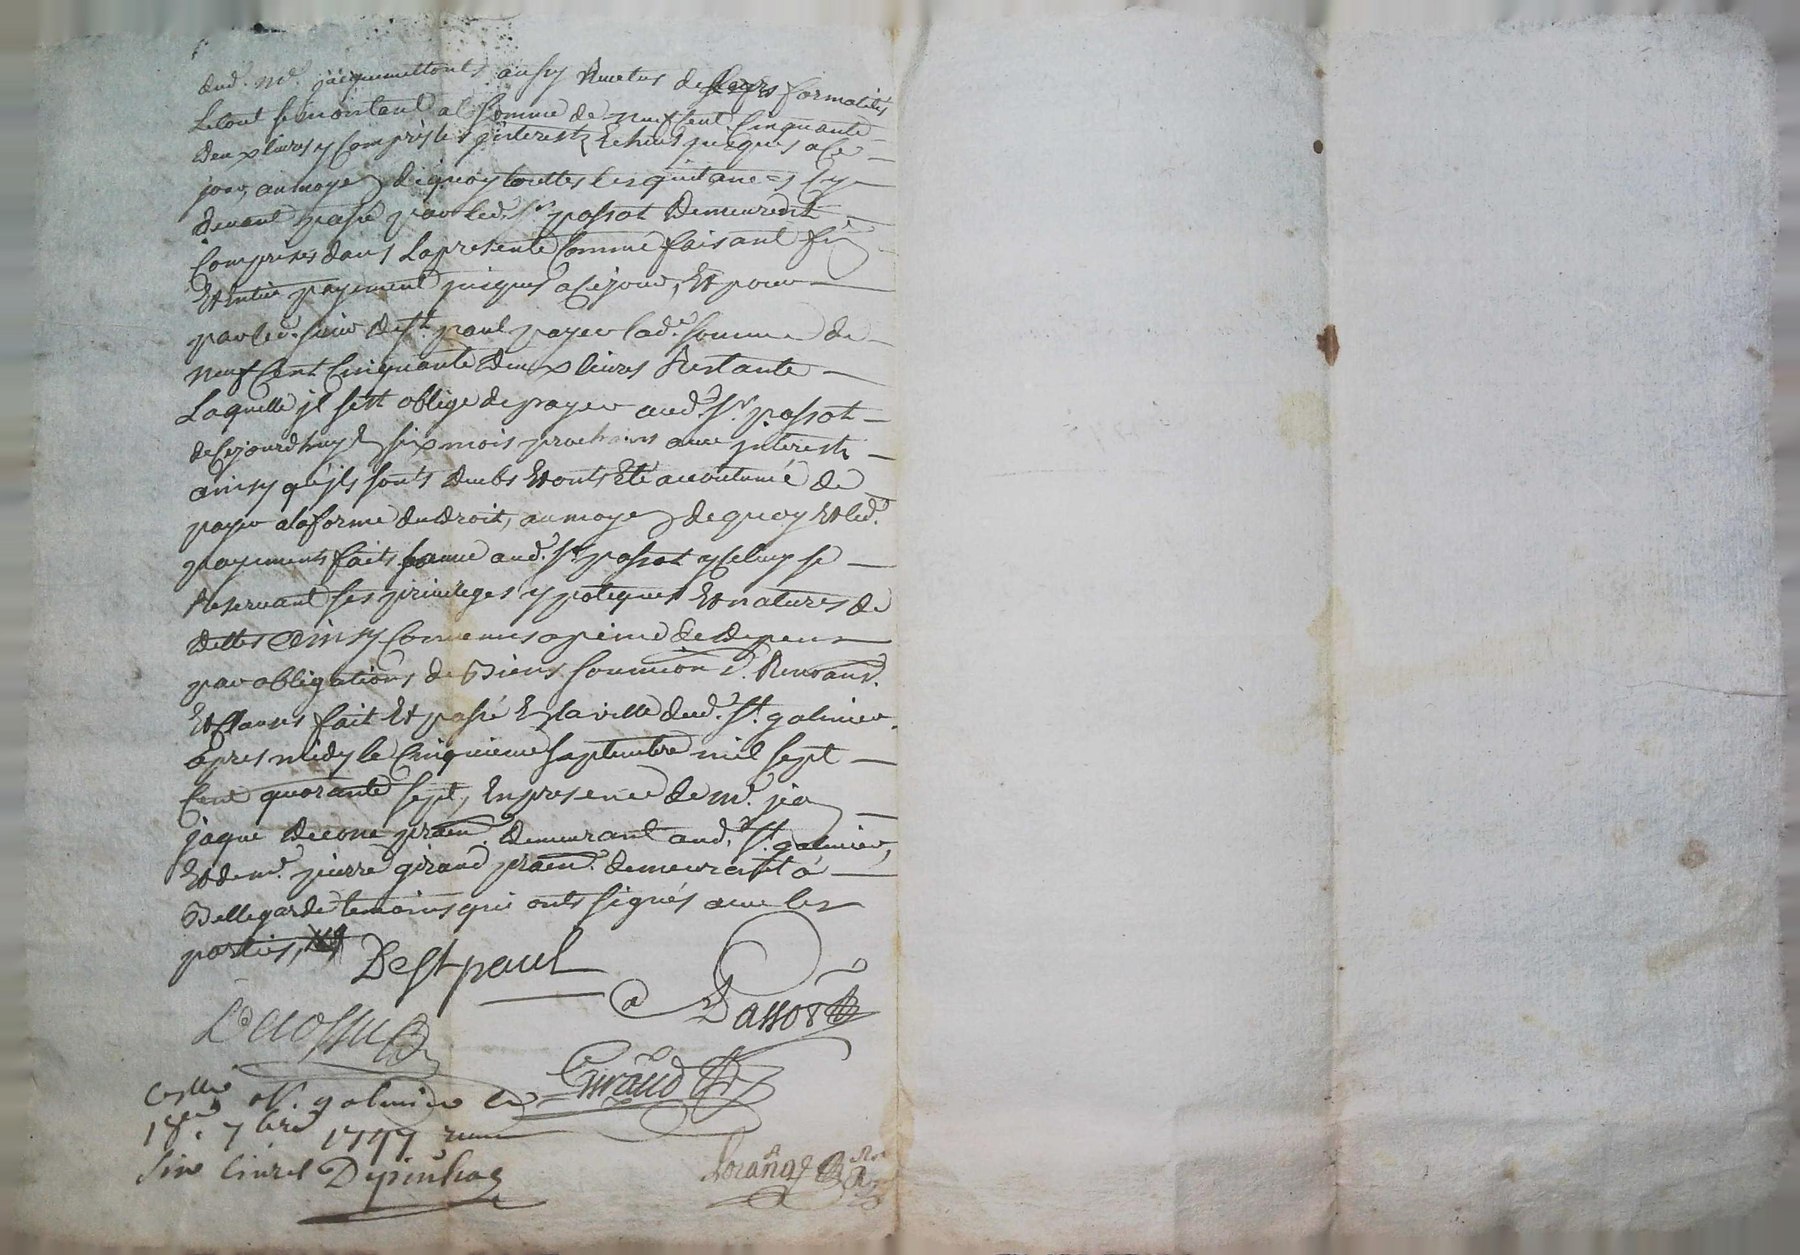 aud. Me. jacquemettont aussy Revetus de leurs formalités
Letout se montant a la somme de neuf cent Cinquante
deux livres y Compris les jnterests Echeus jusques a Ce
jour, au moyen dequoy touttes les quitances Cy
devant passé par led. Sr. passot Demeureront
Comprises dans La presente Comme faisant fin
Et Entier payement jusques a Cejour, Et pour
par led. sieur de St. paul payer lad. somme de
neuf Cent Cinquante deux livres Restante
Laquelle jl sest obligé de payer aud. Sr. passot
de Cejourdhuy En six mois prochains avec jnterests
ainsy qu'jls sonts deubs Et onts Eté accoutumé de
payer a la forme du droit, au moyen dequoy Et led.
payements faits aud. Sr. passot yceluy se
Reservant ses privileges ypoteques Et natures de
dettes ainsy Convenus a peine de depens
par obligations de Biens soumions Renonc.
Et Clauses fait Et passé En la ville dud. St. galmier
apres midy le Cinquieme septembre mil sept
Cent quarante sept, En presence de me. jean
jaque Decone praen. demeurant aud. St. galmier,
Et de me. pierre giraud praen. demeurant a
Bellegarde temoins qui onts signés avec les
parties,
De St paul
Passot
Giraud
St. galmier le
18. 7bre 1747
livres Depinhac